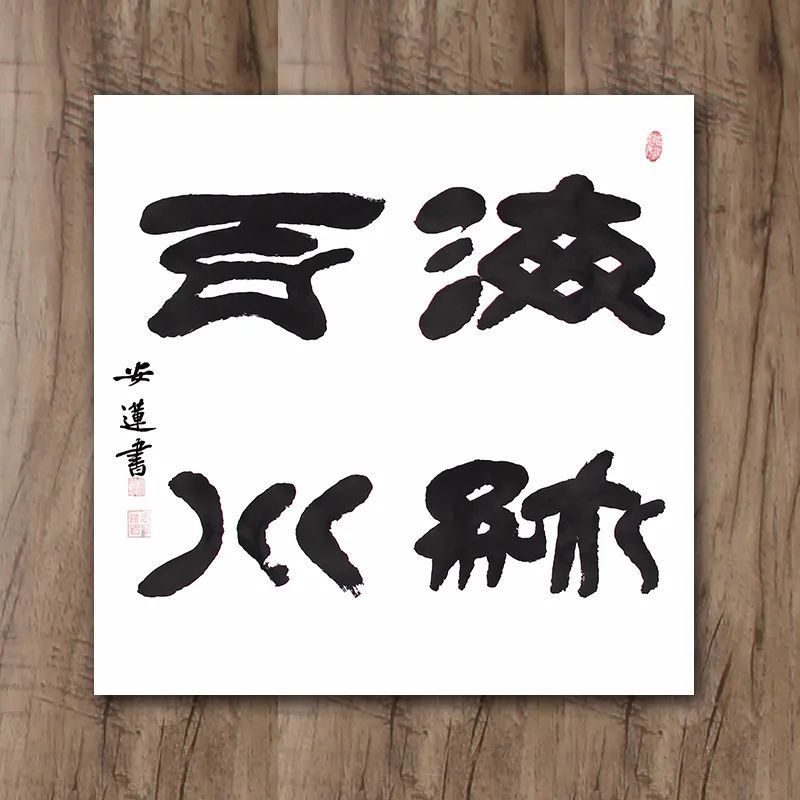 海納
百川
安蓮書